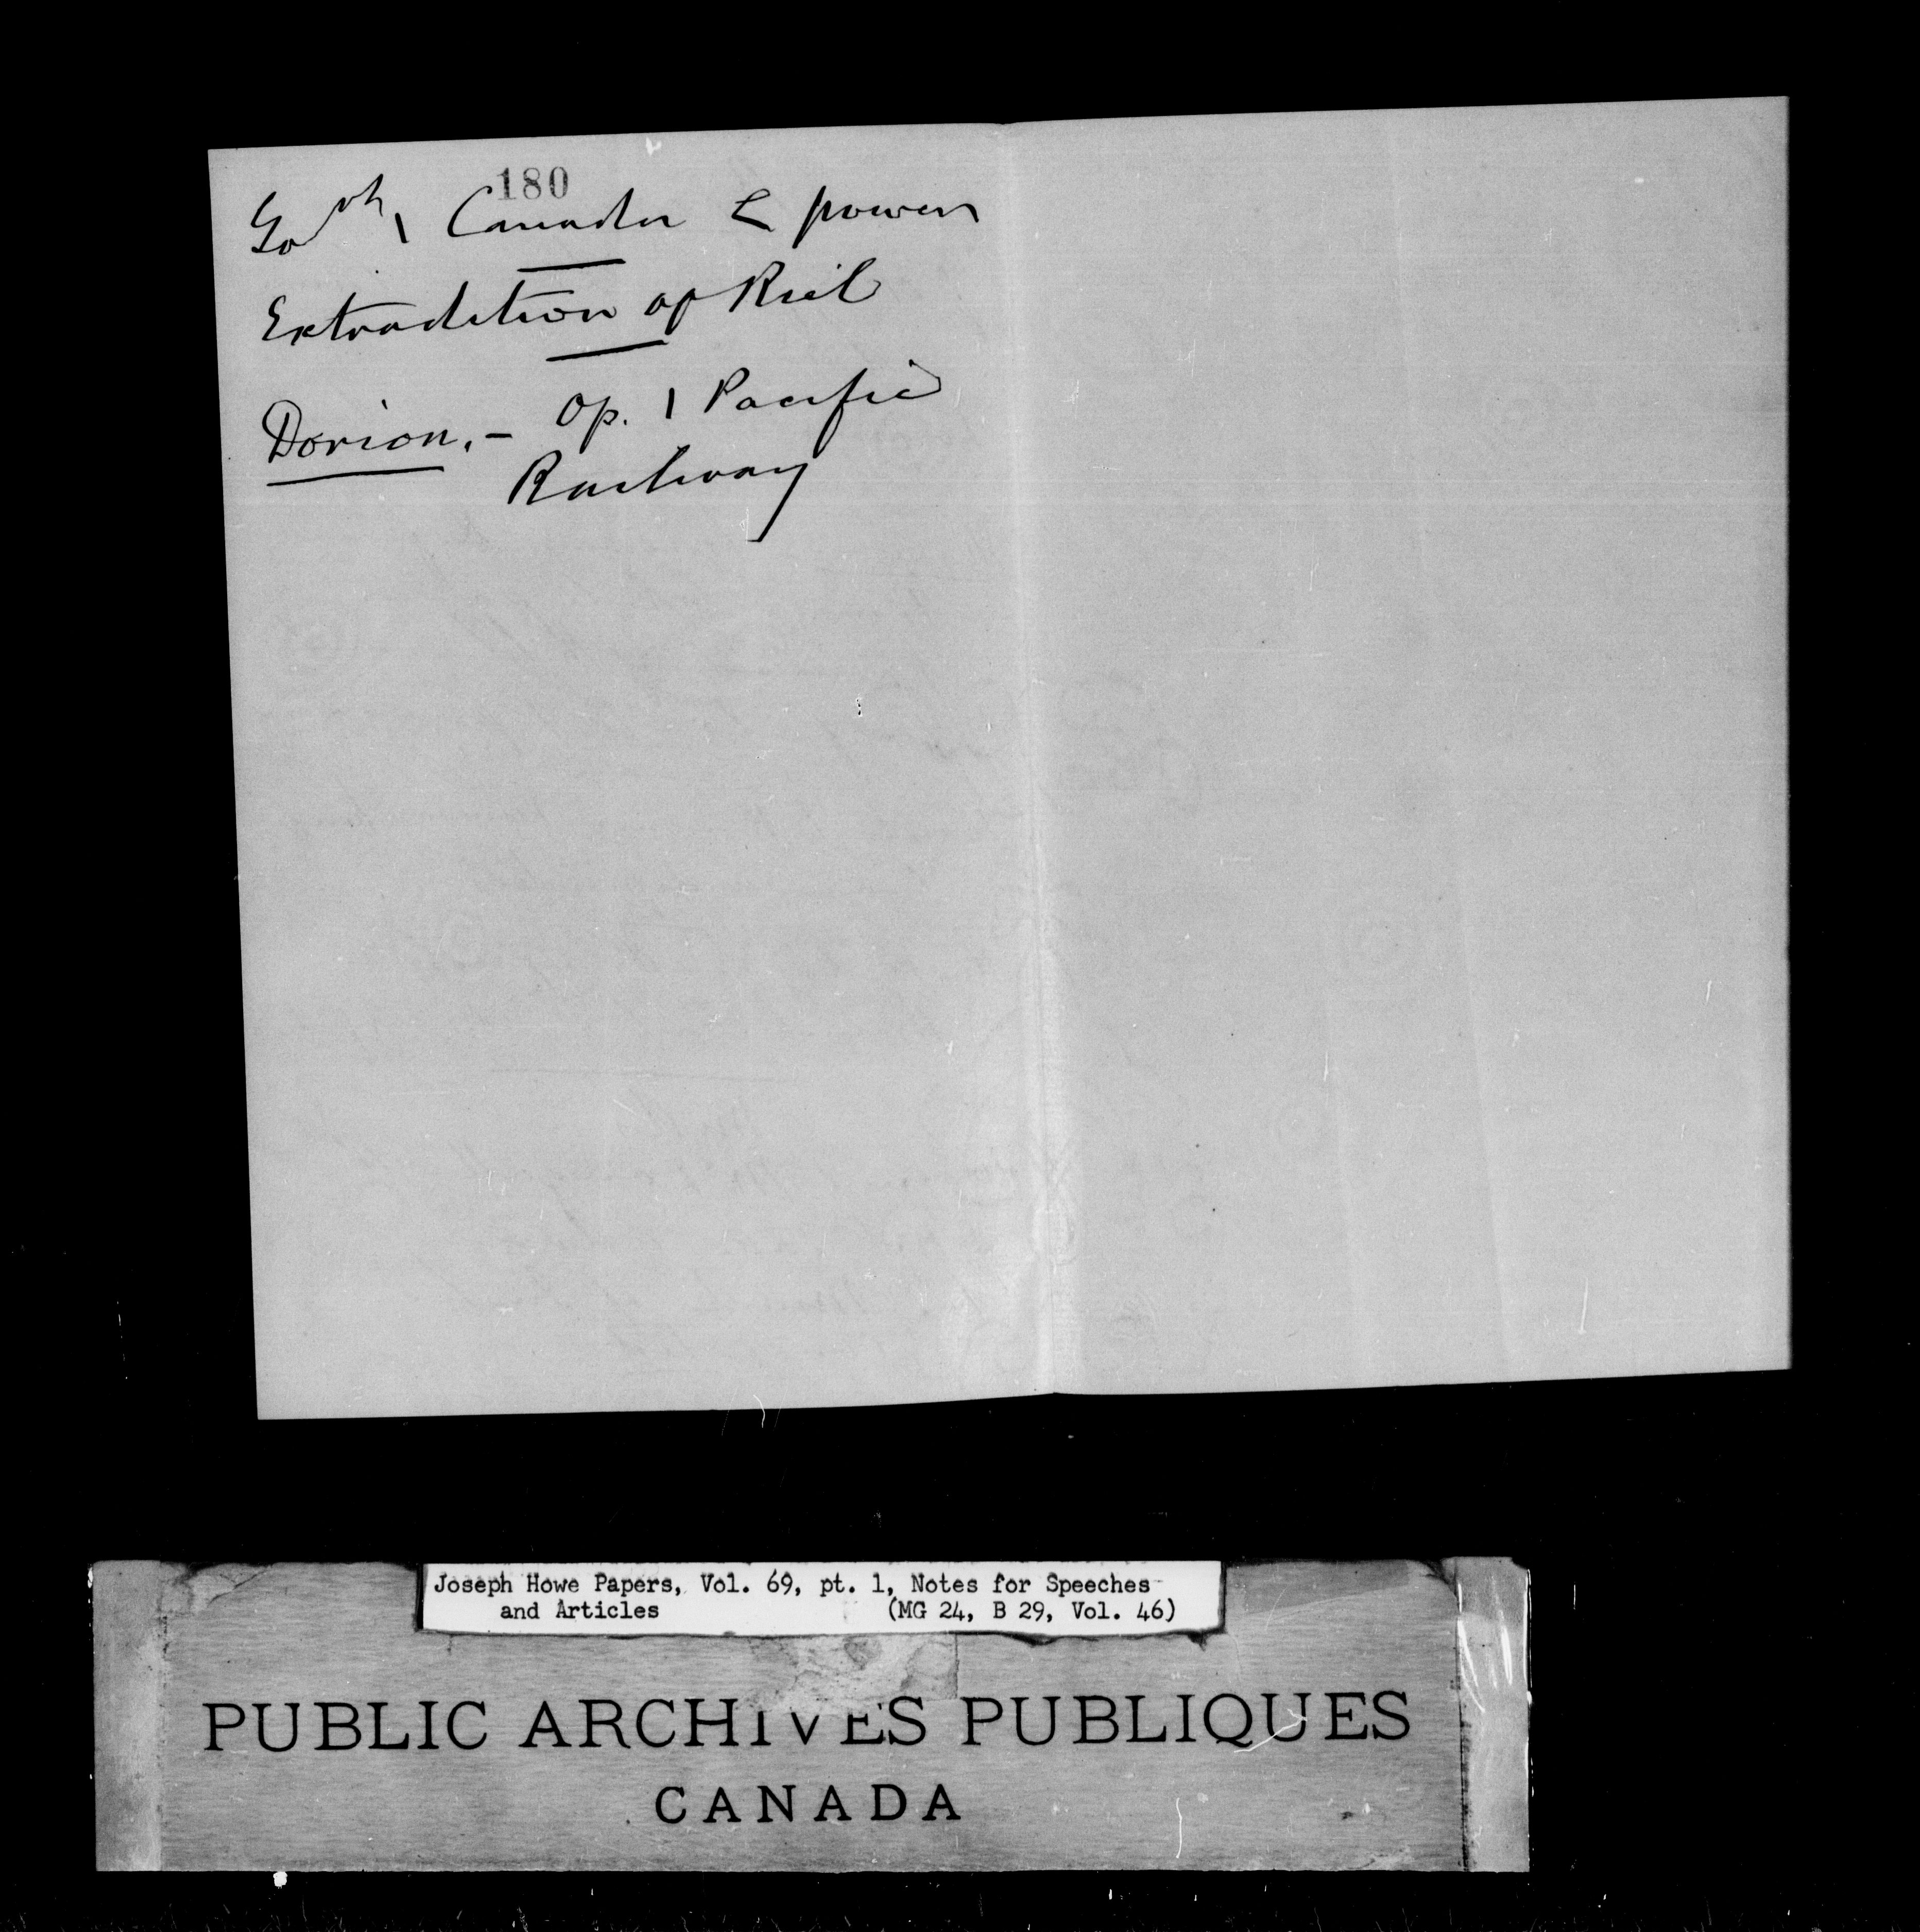 180
Canada & powers
Extradition of Riel
Dorion. – Op. | Pacific
Railway
Joseph Howe Papers, Vol. 69, pt. 1, Notes for Speeches
and Articles (MG 24, B 29, Vol. 46)
PUBLIC ARCHIVES PUBLIQUES
CANADA